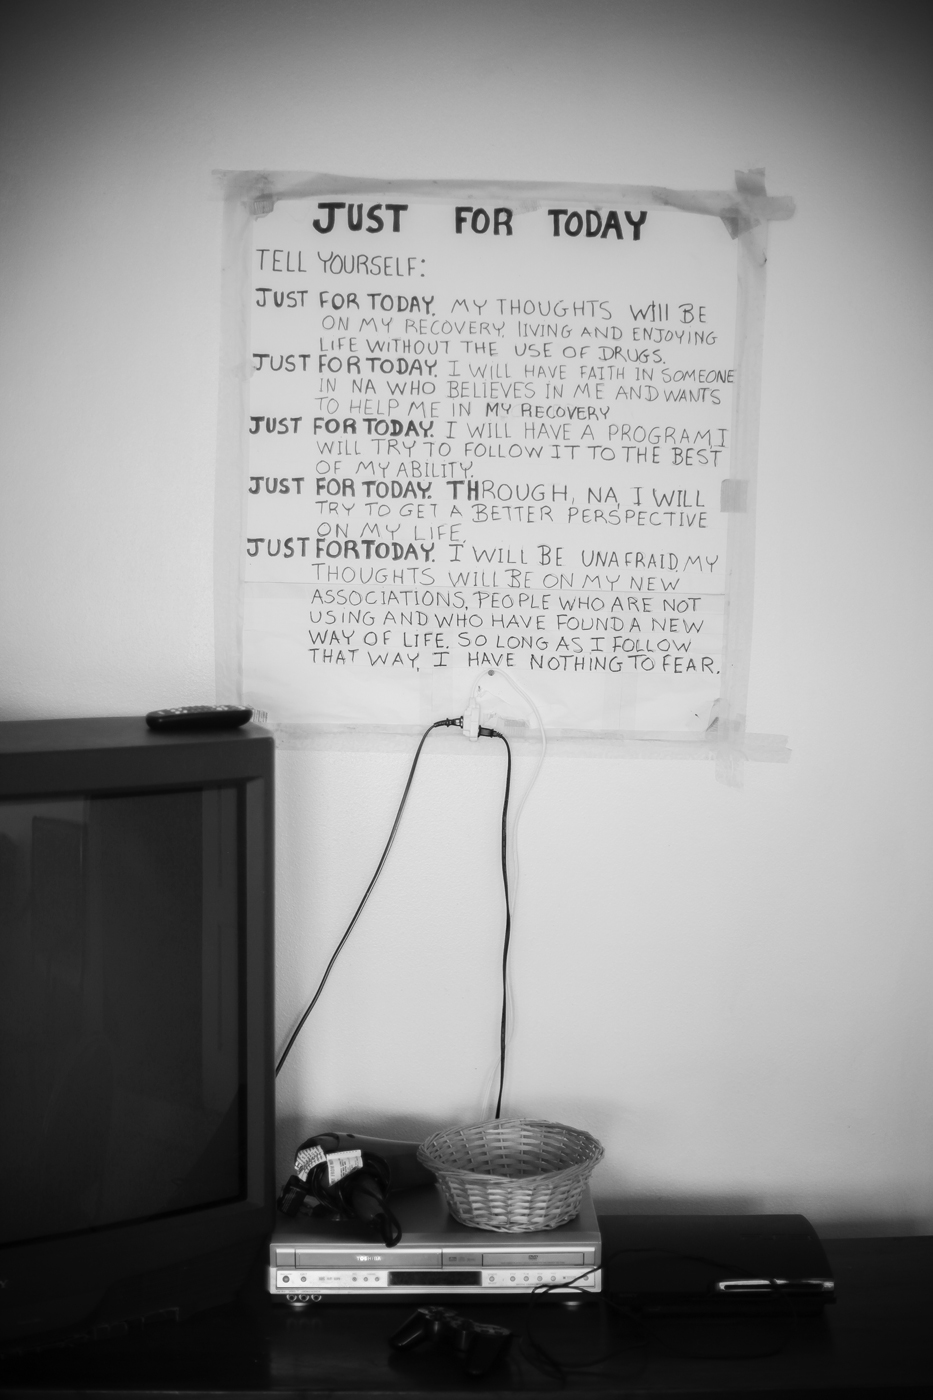 JUST FOR TODAY
TELL YOURSELF:
JUST FOR TODAY. MY THOUGHTS WIll BE
ON MY RECOVERY. lIVING AND ENJOYING
LIFE WITHOUT THE USE OF DRUGS.
JUST FOR TODAY. I WILL HAVE FAITH IN SOMEONE
IN NA WHO BELIEVES IN ME AND WANTS
TO HELP ME IN MY RECOVERY
JUST FOR TODAY. I WILL HAVE A PROGRAM, I
WILL TRY TO FOLLOW IT TO THE BEST
OF MY ABILITY.
JUST FOR TODAY. THROUGH, NA, I WILL
TRY TO GET A BETTER PERSPECTIVE
ON MY LIFE.
JUST FOR TODAY. I WILL BE UNAFRAID, MY
THOUGHTS WILL BE ON MY NEW
ASSOCIATIONS, PEOPLE WHO ARE NOT
USING AND WHO HAVE FOUND A NEW
WAY OF LIFE. SO LONG AS I FOLLOW
THAT WAY, I HAVE NOTHING TO FEAR.
TOSHIBA